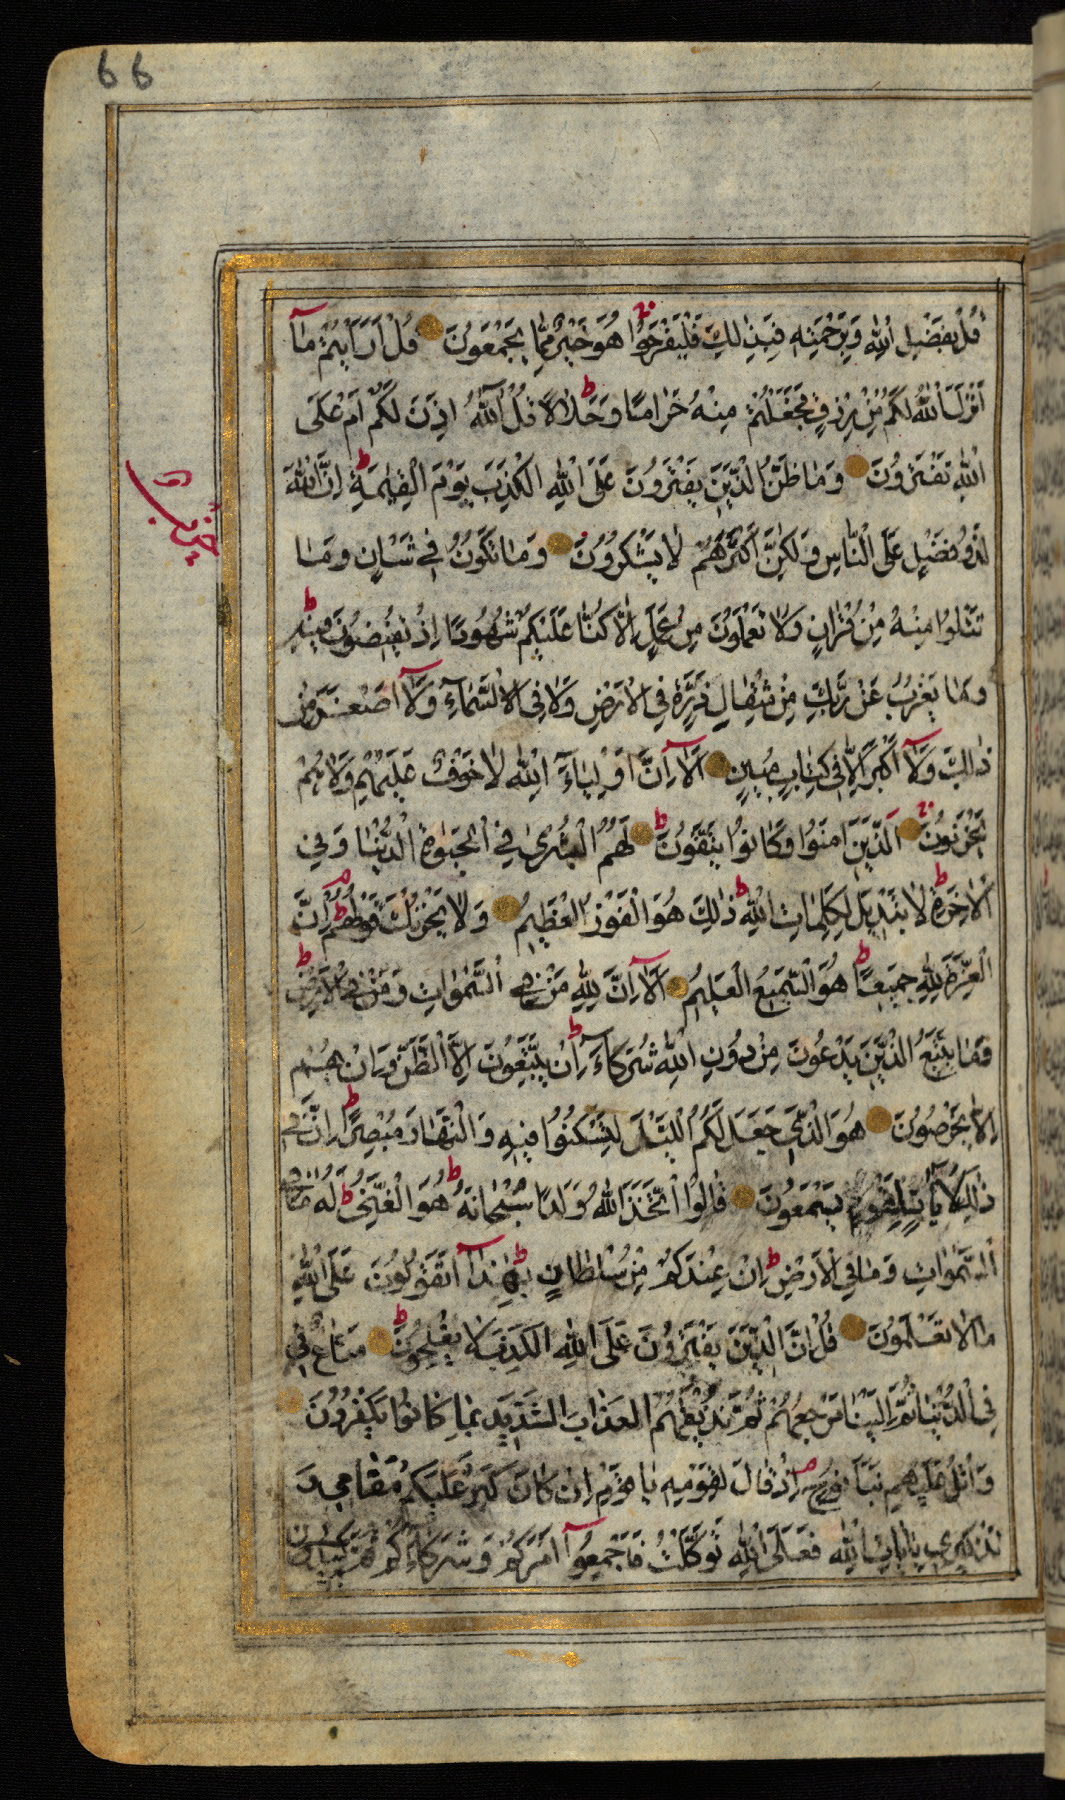 66
قُلْ بِفَضْلِ اللّٰهِ وَبِرَحْمَتِهِ فَبِذٰلِكَ فَلْيَفْرَحُوا هُوَ خَيْرٌ مِمَّا يَجْمَعُونَ قُلْ اَرَاَيْتُمْ مٰآ
اَنْزَلَ اللّٰهُ لَكُمْ مِنْ رِزْقٍ فَجَعَلْتُمْ مِنْهُ حَرٰامًا وَحَلٰالًا قُلْ آللّٰهُ اَذِنَ لَكُمْ اَمْ عَلَى
اللّٰهِ تَفْتَرُونَ وَمٰا ظَنُّ الَّذِينَ يَفْتَرُونَ عَلَى اللّٰهِ الْكَذِبَ يَوْمَ الْقِيٰمَةِ اِنَّ اللّٰهَ
لَذُو فَضْلٍ عَلَى النّٰاسِ وَلٰكِنَّ اَكْثَرَهُمْ لٰا يَشْكُرُونَ وَمٰا تَكُونُ فِي شَاْنٍ وَمٰا
حزب
تَتْلُوا مِنْهُ مِنْ قُرْاٰنٍ وَلٰا تَعْمَلُونَ مِنْ عَمَلٍ اِلّٰا كُنّٰا عَلَيْكُمْ شُهُودًا اِذْ تُفِيضُونَ فِيهِ
وَمٰا يَعْزُبُ عَنْ رَبِّكَ مِنْ مِثْقٰالِ ذَرَّةٍ فِي الْاَرْضِ وَلٰا فِي السَّمٰآءِ وَلٰآ اَصْغَرَ مِنْ
ذٰلِكَ وَلٰآ اَكْبَرَ اِلّٰا فِي كِتٰابٍ مُبِينٍ اَلٰآ اِنَّ اَوْلِيٰآءَ اللّٰهِ لٰا خَوْفٌ عَلَيْهِمْ وَلٰا هُمْ
يَحْزَنُونَ اَلَّذِينَ اٰمَنُوا وَكٰانُوا يَتَّقُونَ لَهُمُ الْبُشْرٰى فِي الْحَيٰوةِ الدُّنْيٰا وَفِي
الْاٰخِرَةِ لٰا تَبْدِيلَ لِكَلِمٰاتِ اللّٰهِ ذٰلِكَ هُوَ الْفَوْزُ الْعَظِيمُ وَلٰا يَحْزُنْكَ قَوْلُهُمْ اِنَّ
الْعِزَّةَ لِلّٰهِ جَمِيعًا هُوَ السَّمِيعُ الْعَلِيمُ اَلٰآ اِنَّ لِلّٰهِ مَنْ فِي السَّمٰوٰاتِ وَمَنْ فِي الْاَرْضِ
وَمٰا يَتَّبِعُ الَّذِينَ يَدْعُونَ مِنْ دُونِ اللّٰهِ شُرَكٰآءَ اِنْ يَتَّبِعُونَ اِلَّا الظَّنَّ وَاِنْ هُمْ
اِلّٰا يَخْرُصُونَ هُوَ الَّذِي جَعَلَ لَكُمُ اللَّيْلَ لِتَسْكُنُوا فِيهِ وَالنَّهٰارَ مُبْصِرًا اِنَّ فِي
ذٰلِكَ لَاٰيٰاتٍ لِقَوْمٍ يَسْمَعُونَ قٰالُوا اتَّخَذَ اللّٰهُ وَلَدًا سُبْحٰانَهُ هُوَ الْغَنِيُّ لَهُ مٰا فِي
السَّمٰوٰاتِ وَمٰا فِي الْاَرْضِ اِنْ عِنْدَكُمْ مِنْ سُلْطٰانٍ بِهٰذٰآ اَتَقُولُونَ عَلَى اللّٰهِ
مٰا لٰا تَعْلَمُونَ قُلْ اِنَّ الَّذِينَ يَفْتَرُونَ عَلَى اللّٰهِ الْكَذِبَ لٰا يُفْلِحُونَ مَتٰاعٌ فِي
فِي الدُّنْيٰا ثُمَّ اِلَيْنٰا مَرْجِعُهُمْ ثُمَّ نُذِيقُهُمُ الْعَذٰابَ الشَّدِيدَ بِمٰا كٰانُوا يَكْفُرُونَ
وَاتْلُ عَلَيْهِمْ نَبَاَ نُوحٍ اِذْ قٰالَ لِقَوْمِهِ يٰا قَوْمِ اِنْ كٰانَ كَبُرَ عَلَيْكُمْ مَقٰامِي وَ
تَذْكِيرِي بِاٰيٰاتِ اللّٰهِ فَعَلَى اللّٰهِ تَوَكَّلْتُ فَاَجْمِعُوٓا اَمْرَكُمْ وَشُرَكٰآءَكُمْ ثُمَّ لٰا يَكُنْ